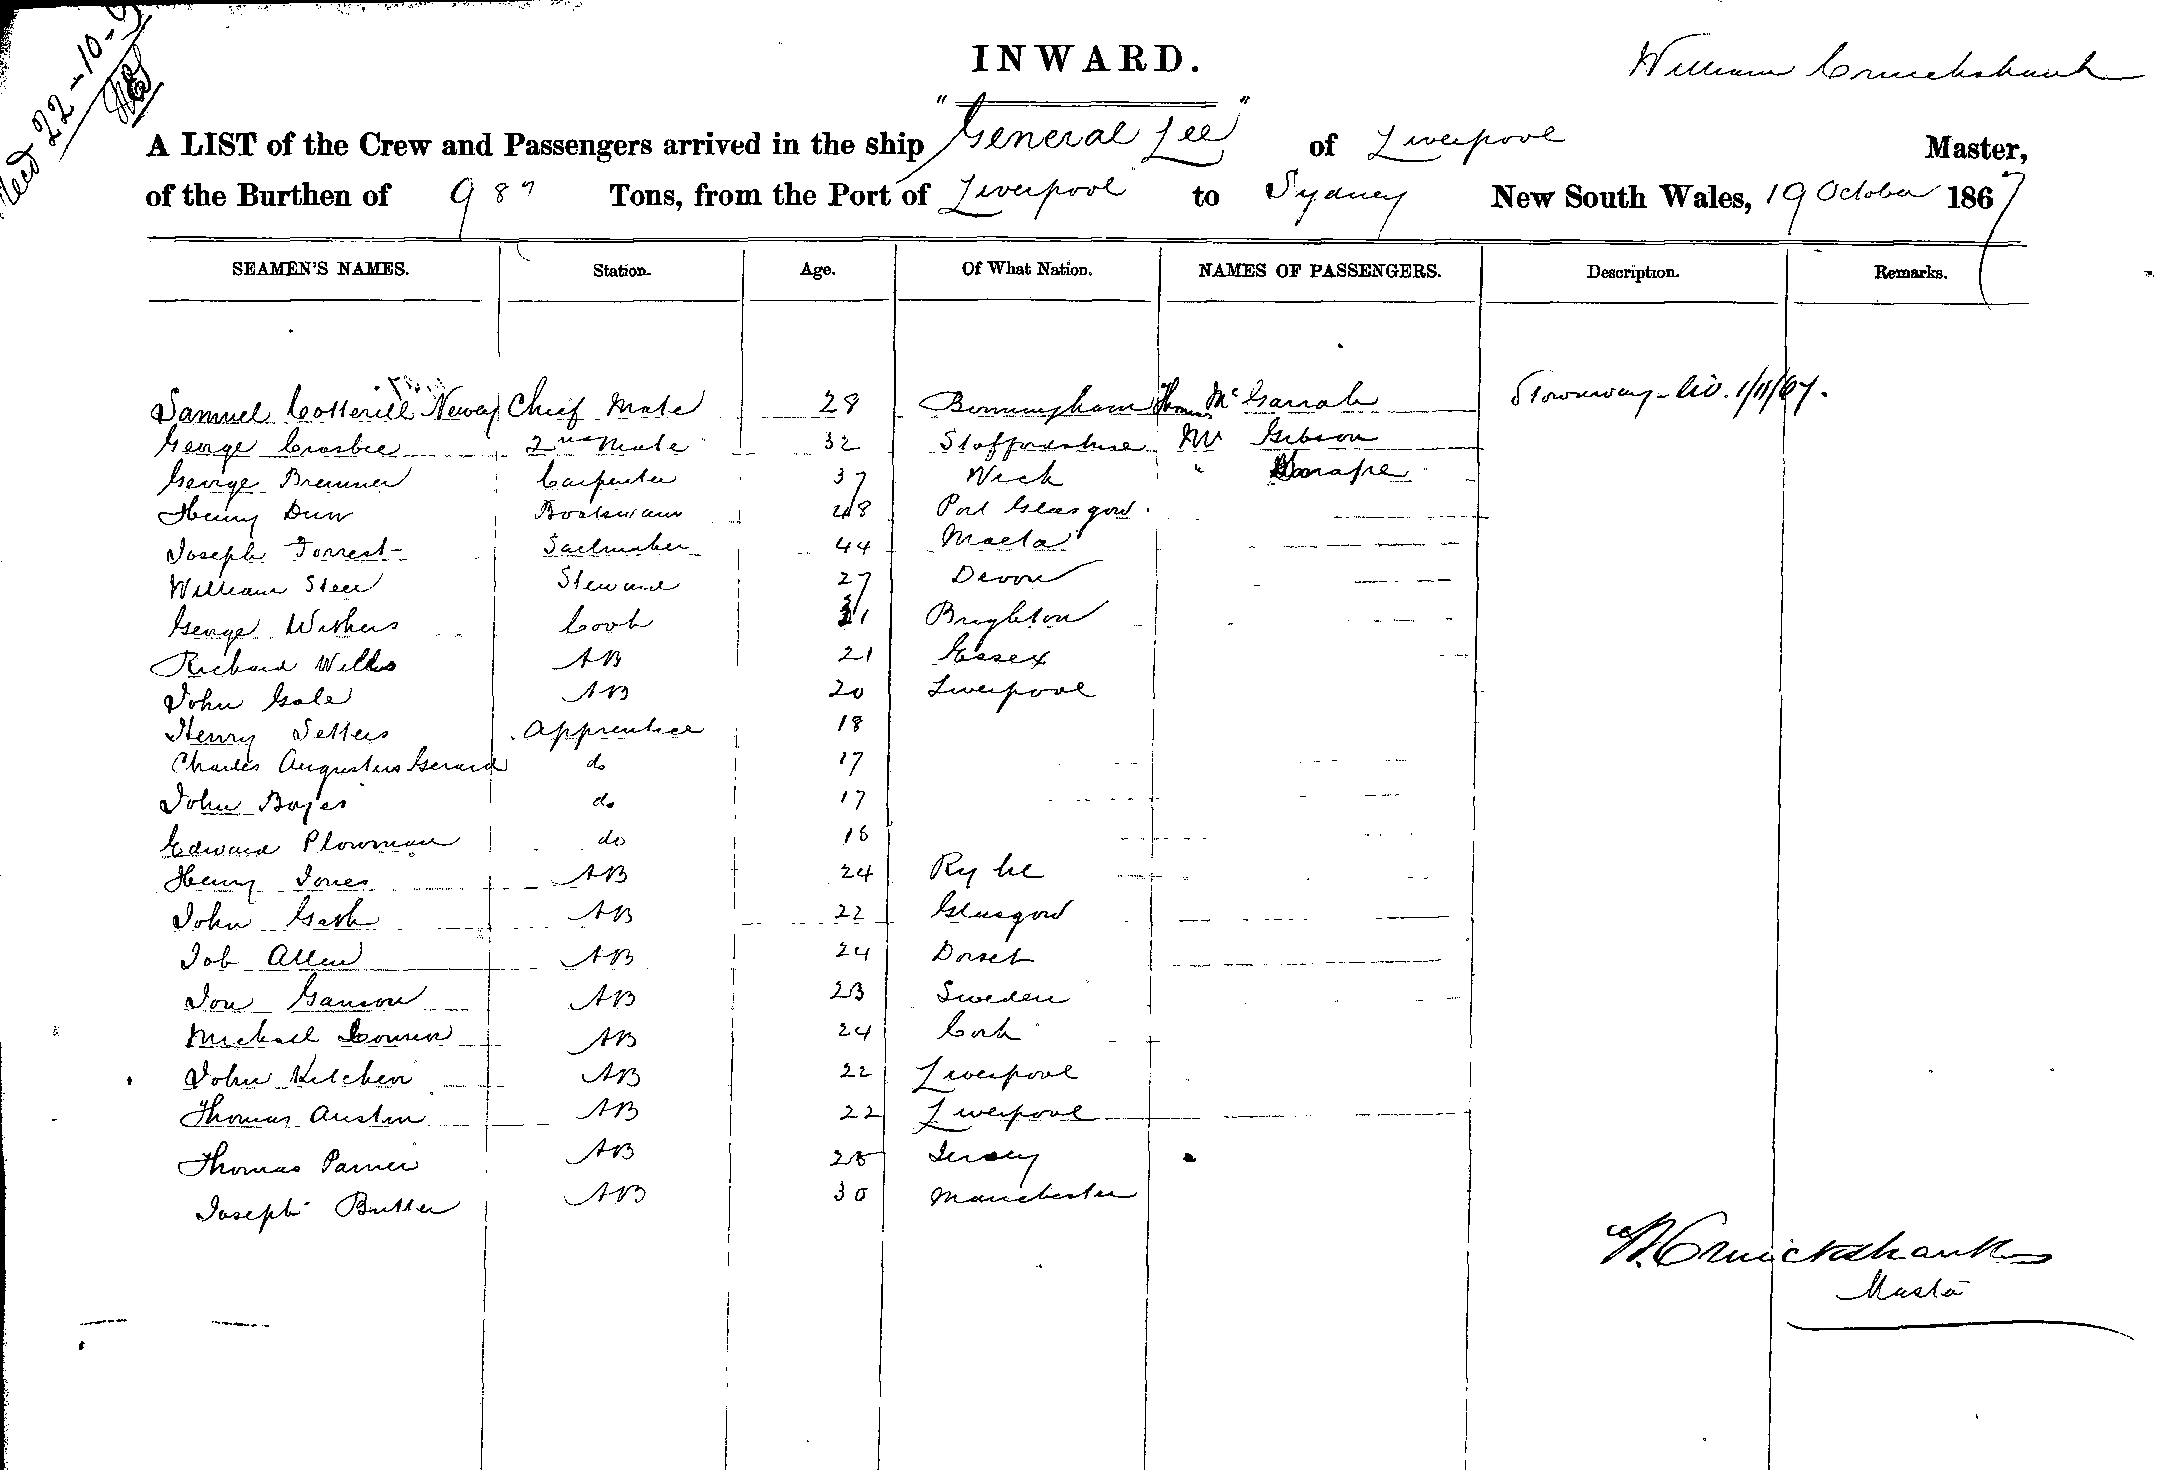 22-10-
INWARD.
William Cruickshank
A LIST of the Crew and Passengers arrived in the ship "General Lee" of Liverpool Master,
of the Burthen of 987 Tons, from the Port of Liverpool to Sydney New South Wales, 19 October 1867
SEAMEN'S NAMES. Station. Age. Of What Nation. NAMES OF PASSENGERS. Description. Remarks.
Samuel Cotterill Newey Chief Mate 28 Birmingham Thomas McGarrah Stowaway - 1/11/67.
George Crosbie 2nd Mate 32 Staffordshire Mr Gibson
George Bremner Carpenter 37 Wick "
Henry Dunn Boatswain 28 Port Glasgow
Joseph Forrest Sailmaker 44 Malta
William Steer Steward 27 Devon
George Withers Cook 31 Brighton
Richard Wills AB 21 Essex
John Gale AB 20 Liverpool
Henry Setters Apprentice 18
Charles Augustus Gerard do 17
John Boyes do 17
Edward Plowman do 16
Henry Jones AB 24
John Gash AB 22 Glasgow
Job Allen AB 24 Dorset
Jon Ganson AB 23 Sweden
Michael Connor AB 24 Cork
John Kitchen AB 22 Liverpool
Thomas Austin AB 22 Liverpool
Thomas AB 25 Jersey
Joseph Butler AB 30 Manchester
W. Cruickshank
Master